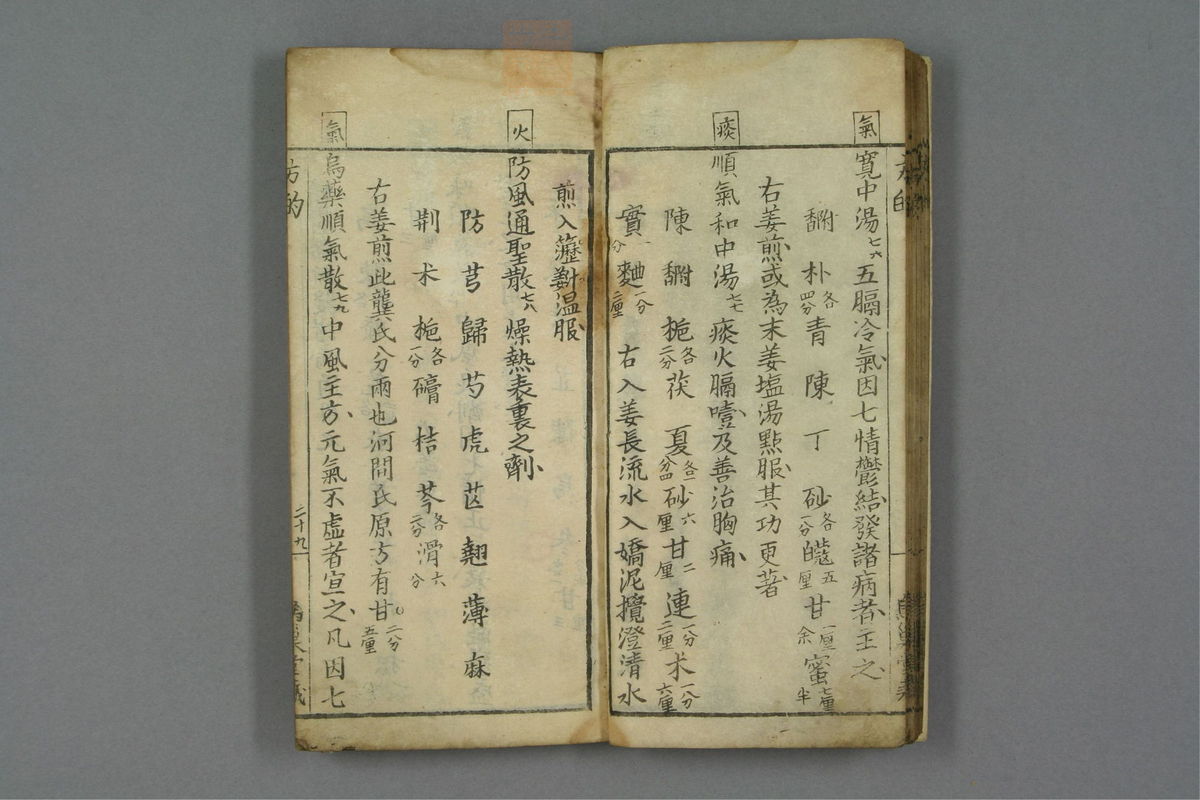 氣
寛中湯七六五膈冷氣因七情鬱結發諸病者主之
朴各四分青陳丁砂各一分五厘甘一厘余蜜七厘半
右姜煎或為末姜塩湯點服其功更著
痰
順氣和中湯七七痰火膈噎及善治胸痛
陳梔各二分茯夏各一分四砂六厘甘二厘連一分二厘朮一分六厘
實一分麯一分二厘右入姜長流水入嬌泥攪澄清水
煎入温服
火
防風通聖散七八燥熱表裏之劑
防芎歸芍虎芷翹薄麻
荆朮梔各一分桔芩各二分滑六分
右姜煎此龔氏分兩也河間氏原方有甘二分五厘
氣
烏藥順氣散七九中風主方元氣不虚者宣之凡因七
方的
二十九